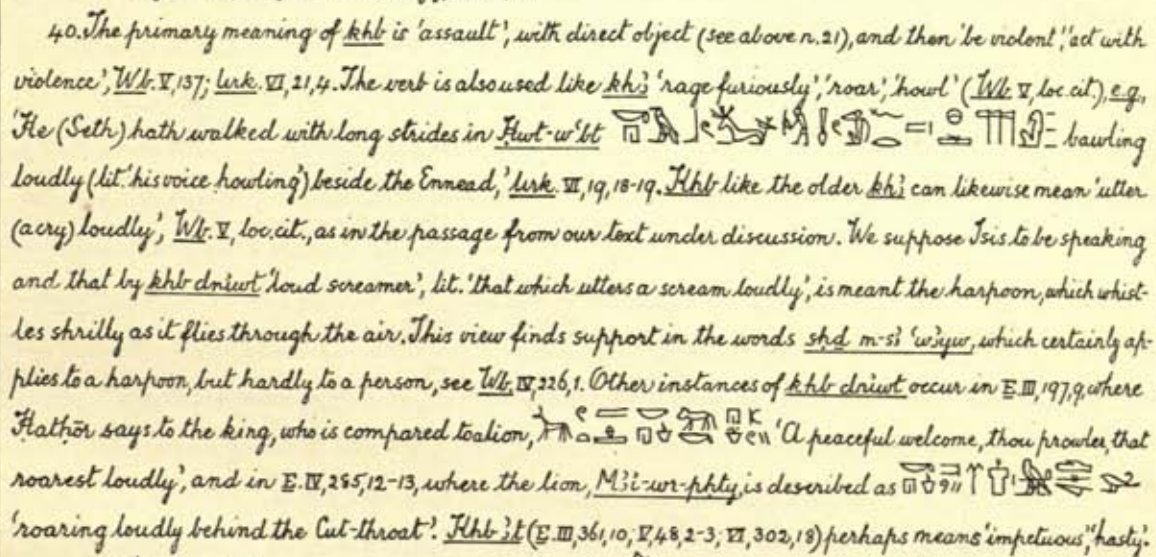 40. The primary meaning of khb is 'assault', with direct object (see above n. 21), and then 'be violent', 'act with
violence', Wb. V, 137; Urk. VI, 21, 4. The verb is also used like khꜣ 'rage furiously', 'roar', 'howl' (Wb. V, loc. cit.), e.g.,
'He (Seth) hath walked with long strides in Ḥwt-wꜥbt bawling
loudly (lit. 'his voice howling') beside the Ennead,' Urk. VI, 19, 18-19. Khb like the older khꜣ can likewise mean 'utter
(a cry) loudly', Wb. V, loc. cit., as in the passage from our text under discussion. We suppose Isis to be speaking
and that by khb dniwt 'loud screamer', lit. 'that which utters a scream loudly', is meant the harpoon, which whist-
les shrilly as it flies through the air. This view finds support in the words sḫd m-sꜣ ꜥwꜣyw, which certainly ap-
plies to a harpoon, but hardly to a person, see Wb. IV, 226, 1. Other instances of khb dniwt occur in E. III, 197, 9, where
Hathōr says to the king, who is compared to a lion, 'A peaceful welcome, thou prowler, that
roarest loudly', and in E. IV, 285, 12-13, where the lion, Mꜣi-wr-pḥty, is described as
'roaring loudly behind the Cut-throat'. Khb ꜣt (E. III, 361, 10; V, 48, 2-3; VI, 302, 18) perhaps means 'impetuous', 'hasty'.